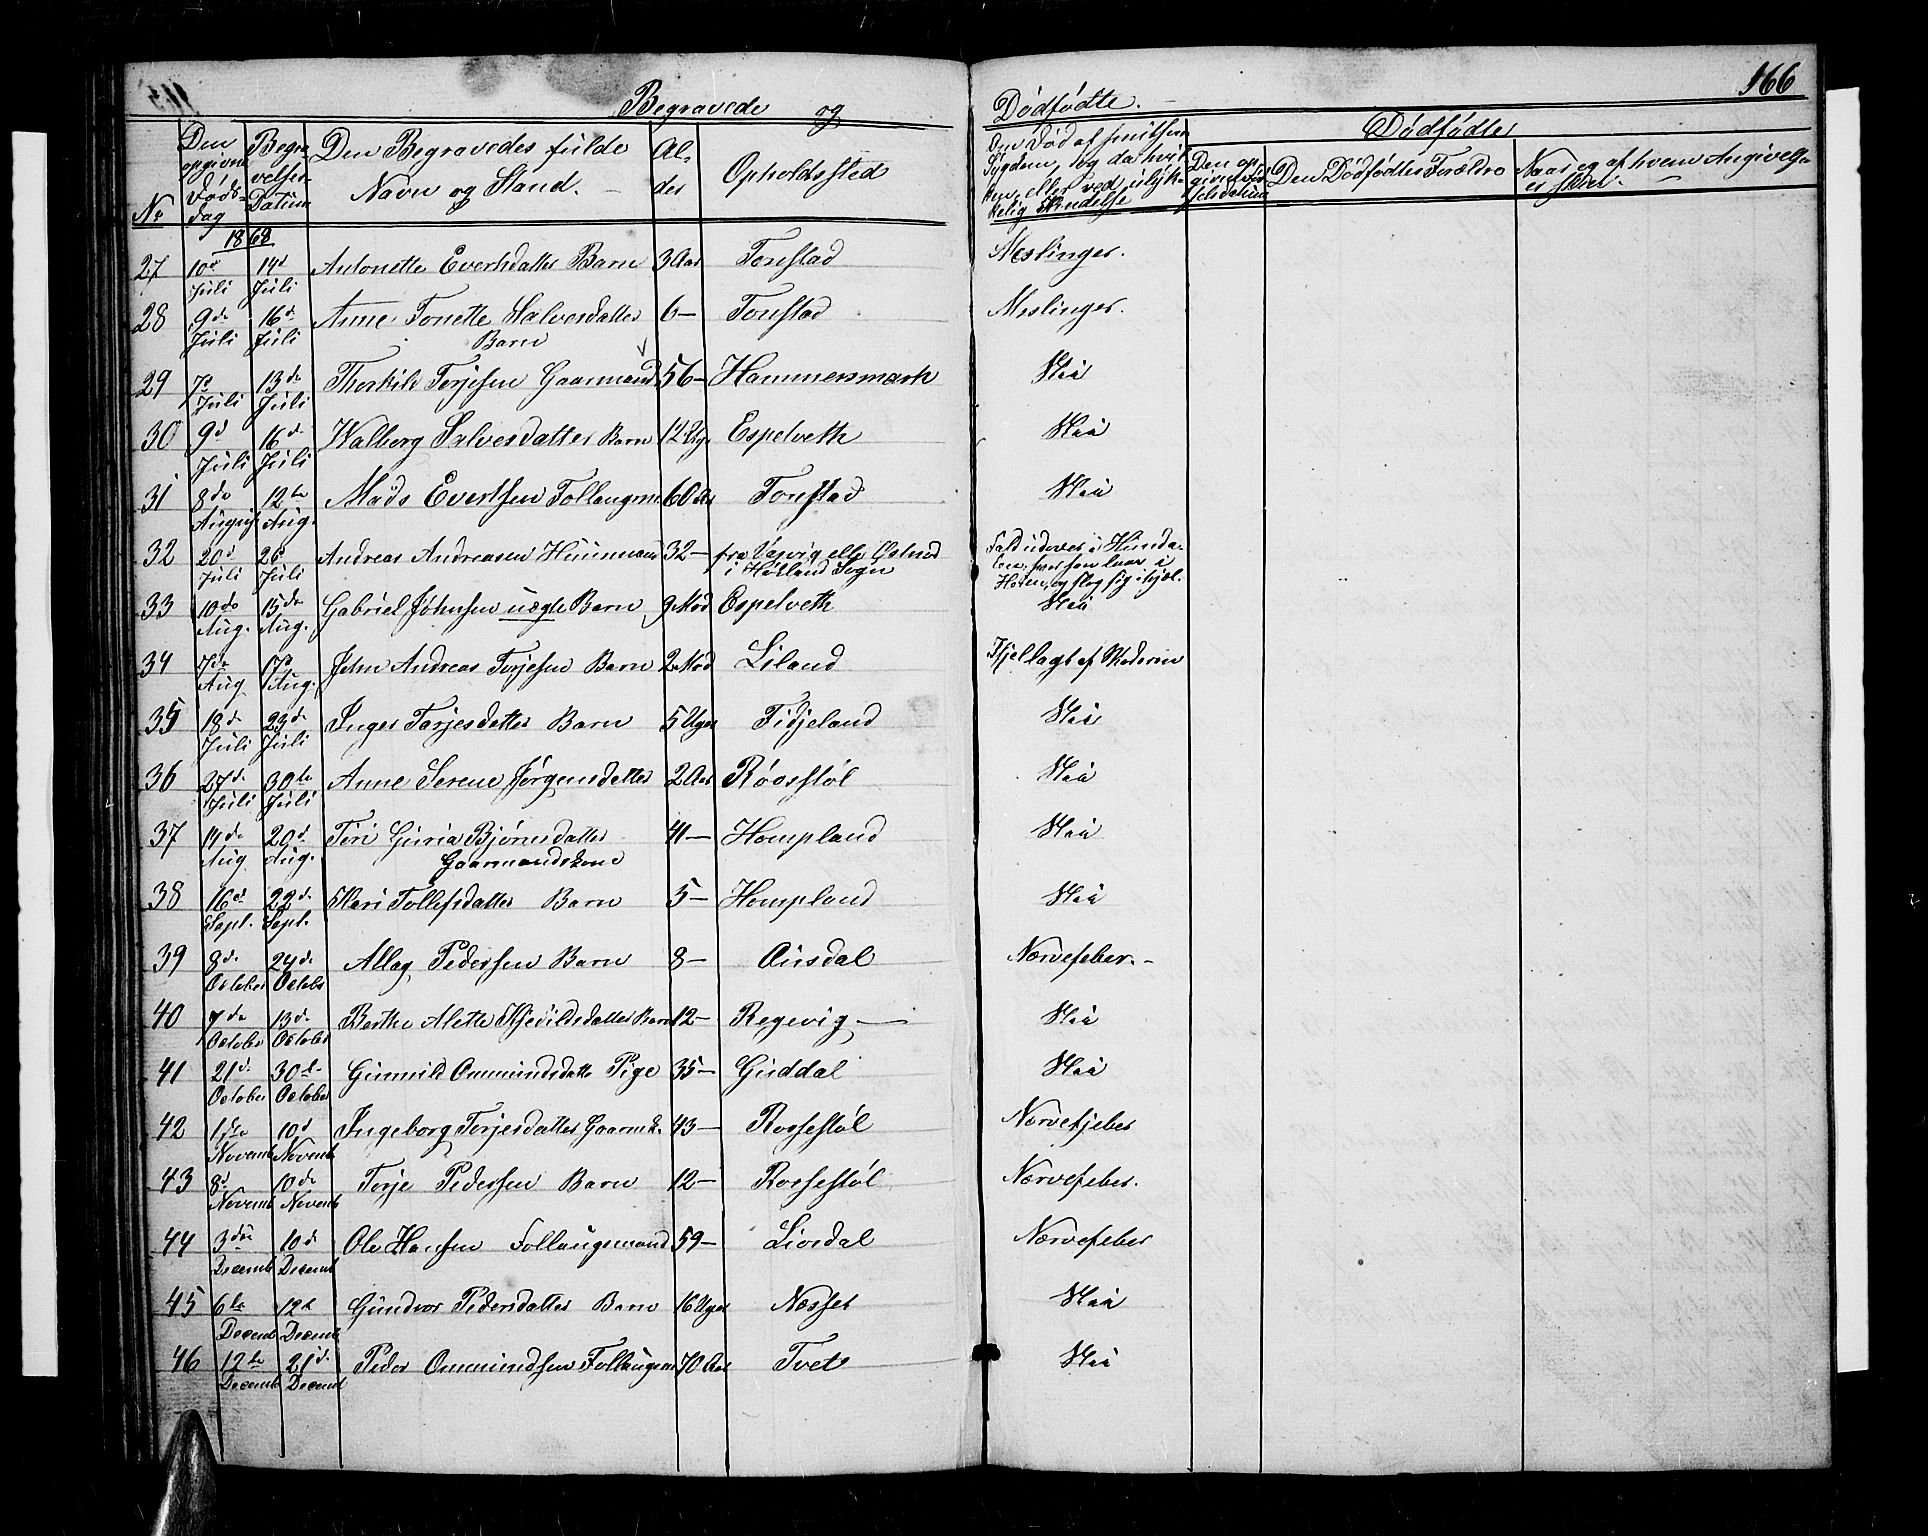 Begravede og Dødfødte.
166
No
Den opgivne Døds-dag
Begravelses-Datum
Den Begravedes fulde Navn og Stand.
Alder
Opholdssted
Om Død af smitsom Sygdom, og da hvilken, eller ved ulykkelig Hændelse
Dødfødte
Den opgivne Fødselsdatum
Den Dødfødtes Forældre
Naar og af hvem Angivelse er skeet.
1868
27 10de Juli 14d Juli Antonette Evertsdatter Barn 3 Aar Tonstad Meslinger.
28 9de Juli 16d Juli Anne Tonette Salvesdatter Barn 6— Tonstad Meslinger.
29 7d Juli 13de Juli Thorkild Torjesen Gaarmand 56— Hammersmark Nei
30 9d Juli 16de Juli Walborg Salvesdatter Barn 12 Ug. Espelveth Nei
31 8de August 12te Aug. Mads Evertsen Follaugm. 60 Aar Tonstad Nei
32 20d Juli 26d Juli Andreas Andreasen Huusmand 32— fra i Sogn Fald udover i
Heien, og slog sig ihjæl.
33 10de Aug. 15de Aug. Gabriel Johnsen uægte Barn 9 Mdd Espelveth Nei
34 7de Aug 17d Aug. John Andreas Torjesen Barn 2 Mdd Liland Ihjellagt af Moderen
35 18de Juli 23de Juli Inger Tarjesdatter Barn 5 Uger Fidjeland Nei
36 27de Juli 30te Juli Anne Serene Jørgensdatter 2 Aar Røosstøl Nei
37 14de Aug 20d Aug. Tori Guria Bjørnsdatter Gaarmandskone 41— Hompland Nei
38 16d Sept. 22de Sept. Kari Tollefsdatter Barn 5— Hompland Nei
39 8de October 24de Octobr Allag Pedersen Barn 8— Ousdal Nervefeber.—
40 7de October 13de October Berthe Alette Kjetilsdatter Barn 12— Regevig — Nei
41 21d. October 30te October Gunnild Ommundsdatter Pige 35— Guddal Nei
42 1ste Novemb 10d Novemb Ingeborg Torjesdatter Gaarmk. 43— Rossestøl Nervefjeber
43 8d Novemb 10de Novemb Torje Pedersen Barn 12— Rossestøl Nervefeber.
44 3die Decemb 10de Decemb Ole Hansen Follaugsmand 59— Liordal Nervefeber
45 6te Decemb 12d Decemb Gundvor Pedersdatter Barn 16 Uger Nesset Nei
46 12te Decemb 21d. Decemb Peder Ommundsen Follaugsm. 70 Aar Tvet Nei